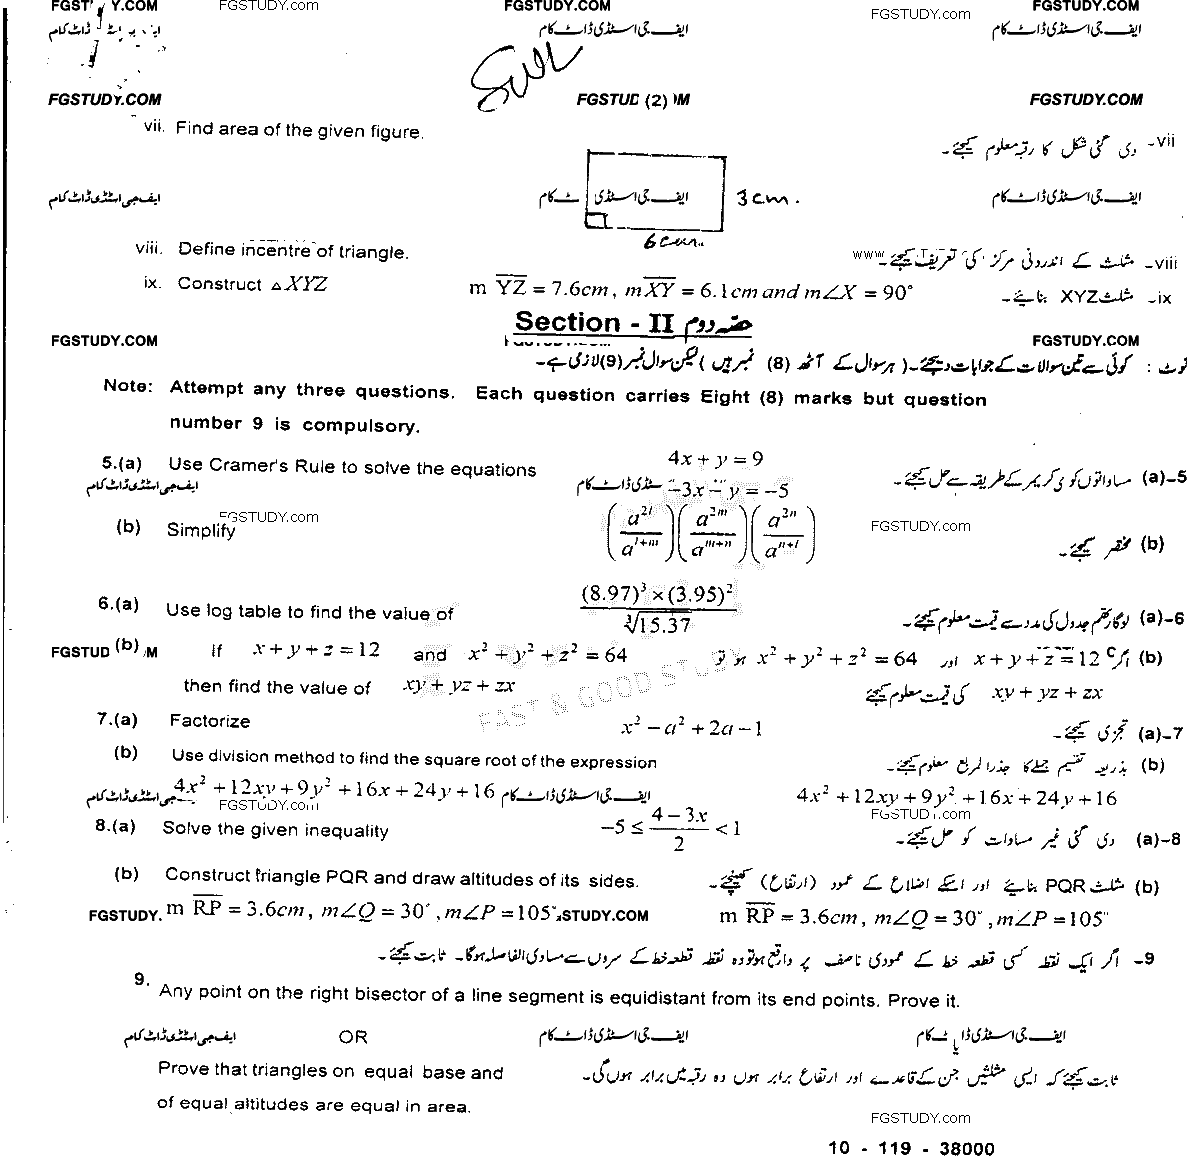 FGST Y.COM FGSTUDY.com FGSTUDY.COM FGSTUDY.com FGSTUDY.COM
ایف جی اسٹڈی ڈاٹ کام ایف جی اسٹڈی ڈاٹ کام
FGSTUDY.COM FGSTUD (2) M FGSTUDY.COM
vii. Find area of the given figure. vii- دی گئی شکل کا رقبہ معلوم کیجئے۔
ایف جی اسٹڈی ڈاٹ کام ایف جی اسٹڈی ٹ کام 3cm. ایف جی اسٹڈی ڈاٹ کام
6cm.
viii. Define incentre of triangle. www viii- مثلث کے اندرونی مرکز کی تعریف کیجئے۔
ix. Construct △XYZ m YZ = 7.6cm, mXY = 6.1cm and m∠X = 90° ix- مثلث XYZ بنائیے۔
Section - II حصہ دوم
FGSTUDY.COM FGSTUDY.COM
نوٹ : کوئی سے تین سوالات کے جوابات دیجئے۔ ( ہر سوال کے آٹھ (8) نمبر ہیں ) لیکن سوال نمبر (9) لازمی ہے۔
Note: Attempt any three questions. Each question carries Eight (8) marks but question
number 9 is compulsory.
5.(a) Use Cramer's Rule to solve the equations 4x + y = 9 5-(a) مساواتوں کو کریمر کے طریقہ سے حل کیجئے۔
ایف جی اسٹڈی ڈاٹ کام سٹڈی ڈاٹ کام -3x - y = -5
FGSTUDY.com FGSTUDY.com
(b) Simplify (a^{2l}/a^{l+m})(a^{2m}/a^{m+n})(a^{2n}/a^{n+l}) (b) مختصر کیجئے۔
6.(a) Use log table to find the value of (8.97)³ × (3.95)² / ∛15.37 6-(a) لوگارتھم جدول کی مدد سے قیمت معلوم کیجئے۔
FGSTUD (b) M If x + y + z = 12 and x² + y² + z² = 64 (b) اگر x + y + z = 12 اور x² + y² + z² = 64 ہو تو
then find the value of xy + yz + zx xy + yz + zx کی قیمت معلوم کیجئے
FAST & GOOD STUDY
7.(a) Factorize x² - a² + 2a - 1 7-(a) تجزی کیجئے۔
(b) Use division method to find the square root of the expression (b) بذریعہ تقسیم جملے کا جذرالمربع معلوم کیجئے۔
ایف جی اسٹڈی ڈاٹ کام 4x² + 12xy + 9y² + 16x + 24y + 16 ایف جی اسٹڈی ڈاٹ کام 4x² + 12xy + 9y² + 16x + 24y + 16
FGSTUDY.com FGSTUDY.com
8.(a) Solve the given inequality -5 ≤ (4 - 3x)/2 < 1 8-(a) دی گئی غیر مساوات کو حل کیجئے۔
(b) Construct triangle PQR and draw altitudes of its sides. (b) مثلث PQR بنائیے اور اسکے اضلاع کے عمود (ارتفاع) کھینچئے۔
FGSTUDY. m RP = 3.6cm, m∠Q = 30°, m∠P = 105° STUDY.COM m RP = 3.6cm, m∠Q = 30°, m∠P = 105°
9- اگر ایک نقطہ کسی قطعہ خط کے عمودی ناصف پر واقع ہو تو وہ نقطہ قطعہ خط کے سروں سے مساوی الفاصلہ ہوگا۔ ثابت کیجئے۔
9. Any point on the right bisector of a line segment is equidistant from its end points. Prove it.
ایف جی اسٹڈی ڈاٹ کام OR ایف جی اسٹڈی ڈاٹ کام یا ایف جی اسٹڈی ڈاٹ کام
Prove that triangles on equal base and ثابت کیجئے کہ ایسی مثلثیں جن کے قاعدے اور ارتفاع برابر ہوں وہ رقبہ میں برابر ہوں گی۔
of equal altitudes are equal in area.
FGSTUDY.com
10 - 119 - 38000